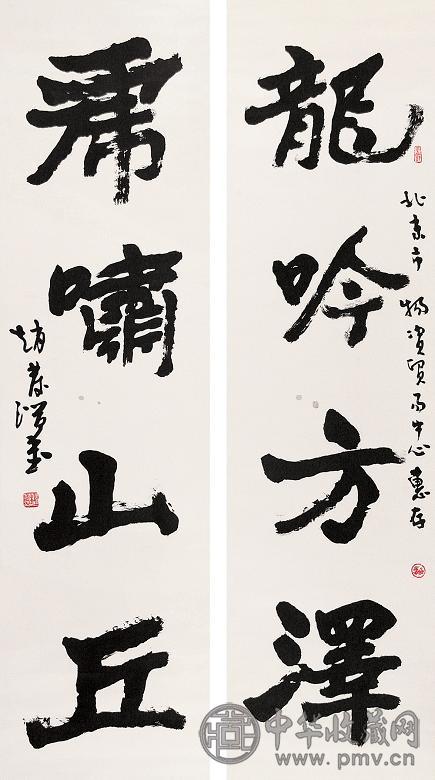 龍吟方澤
北京市物資貿易中心惠存
虎嘯山丘
趙
中华收藏网
www.pmv.cn